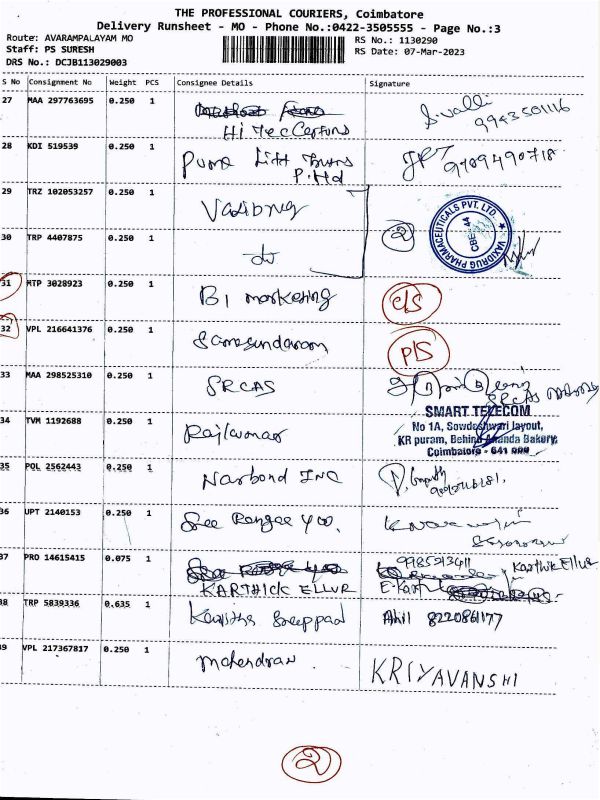 THE PROFESSIONAL COURIERS, Coimbatore
Delivery Runsheet - MO - Phone No.:0422-3505555 - Page No.:3
Route: AVARAMPALAYAM MO
RS No.: 1130290
Staff: PS SURESH
RS Date: 07-Mar-2023
DRS No.: DCJB113029003
S No Consignment No Weight PCS Consignee Details Signature
27 MAA 297763695 0.250 1
S.valli
9943501116
28 KDI 519539 0.250 1
9789490718
P. Ltd
29 TRZ 102053257 0.250 1
30 TRP 4407875 0.250 1
do
2
VAXIDRUG PHARMACEUTICALS PVT. LTD.
CBE-44
31 MTP 3028923 0.250 1 B1 marketing
32 VPL 216641376 0.250 1 P/S
33 MAA 298525310 0.250 1 SRCAS
SRCAS
34 TVM 1192688 0.250 1 Rajkumar
SMART TELECOM
No 1A, Sowdeshwari layout,
KR puram, Behind Ananda Bakery,
Coimbatore - 641 006
35 POL 2562443 0.250 1 Narbond INC
36 UPT 2140153 0.250 1 See Rangee
37 PRO 14615415 0.075 1
KARTHICK ELLUR
Karthik Ellur
38 TRP 5839336 0.635 1
Akil 8220861177
39 VPL 217367817 0.250 1 Mahendran
KRIYAVANSHI
2